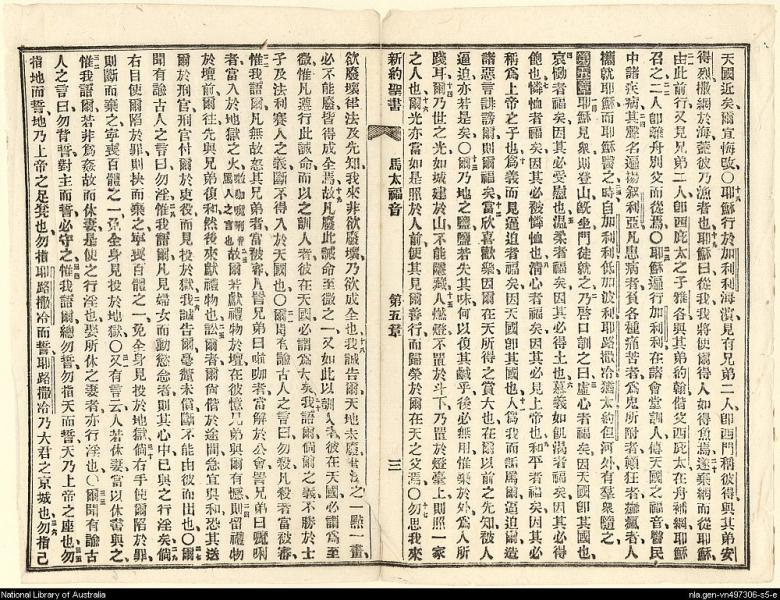 天國近矣爾宜悔改○耶穌行於加利利海濱見有兄弟二人卽西門稱彼得與其弟安
得烈撒網於海蓋彼乃漁者也耶穌曰從我我將使爾得人如得魚焉遂棄網而從耶穌
由此前行又見兄弟二人卽西庇太之子雅各與其弟約翰偕父西庇太在舟補網耶穌
召之二人卽離舟別父而從焉○耶穌遍行加利利在諸會堂訓人傳天國之福音醫民
中諸疾病其聲名遍揚敘利亞凡患病者負各種痛苦者爲鬼所附者癲狂者癱瘋者人
攜就耶穌而耶穌醫之時自加利利低加波利耶路撒冷猶太約但河外有羣衆隨之
第五章 耶穌見衆則登山旣坐門徒就之乃啓口訓之曰虛心者福矣因天國卽其國也
哀慟者福矣因其必受慰也溫柔者福矣因其必得土也慕義如飢渴者福矣因其必得
飽也憐恤者福矣因其必被憐恤也淸心者福矣因其必見上帝也和平者福矣因其必
稱爲上帝之子也爲義而見逼迫者福矣因天國卽其國也人爲我而詬罵爾逼迫爾造
諸惡言誹謗爾則爾福矣當欣喜歡樂因爾在天所得之賞大也在爾以前之先知被人
逼迫亦若是矣○爾乃地之鹽鹽若失其味何以復其鹹乎後必無用惟棄於外爲人所
踐耳爾乃世之光如城建於山不能隱藏人燃燈不置於斗下乃置於燈臺上則照一家
之人也爾光亦當如是照於人前使其見爾善行而歸榮於爾在天之父焉○勿思我來
新約聖書 馬太福音 第五章 三
欲廢壞律法及先知我來非欲廢壞乃欲成全也我誠告爾天地未廢律法之一點一畫
必不能廢皆得成全焉故凡廢此誡命至微之一又如此以訓人者彼在天國必謂爲至
微惟凡遵行此誡命而以之訓人者彼在天國必謂爲大矣我語爾倘爾之義不勝於士
子及法利賽人之義斷不得入於天國也○爾聞有諭古人之言曰勿殺凡殺者當被審
惟我語爾凡無故怒其兄弟者當被審凡詈兄弟曰喇咖者當解於公會詈兄弟曰嚤唎
者當入於地獄之火 喇咖嚤唎詈罵人之言也 故爾若獻禮物於壇在彼憶兄弟與爾有憾則留禮物
於壇前爾往先與兄弟復和然後來獻禮物也訟爾者爾偕於途間急宜與和恐其送
爾於刑官刑官付爾於吏役而見投於獄我誠告爾毫釐未償斷不能由彼而出也○爾
聞有諭古人之言曰勿淫惟我語爾凡見婦女而動慾念者則其心中已與之行淫矣倘
右目使爾陷於罪則抉而棄之寧喪百體之一免全身見投於地獄倘右手使爾陷於罪
則斷而棄之寧喪百體之一免全身見投於地獄○又有言云人若休妻當以休書與之
惟我語爾若非爲姦故而休妻是使之行淫也娶所休之妻者亦行淫也○爾聞有諭古
人之言曰勿背誓對主而誓必守之惟我語爾總勿誓勿指天而誓天乃上帝之座也勿
指地而誓地乃上帝之足凳也勿指耶路撒冷而誓耶路撒冷乃大君之京城也勿指己
National Library of Australia
nla.gen-vn497306-s5-e